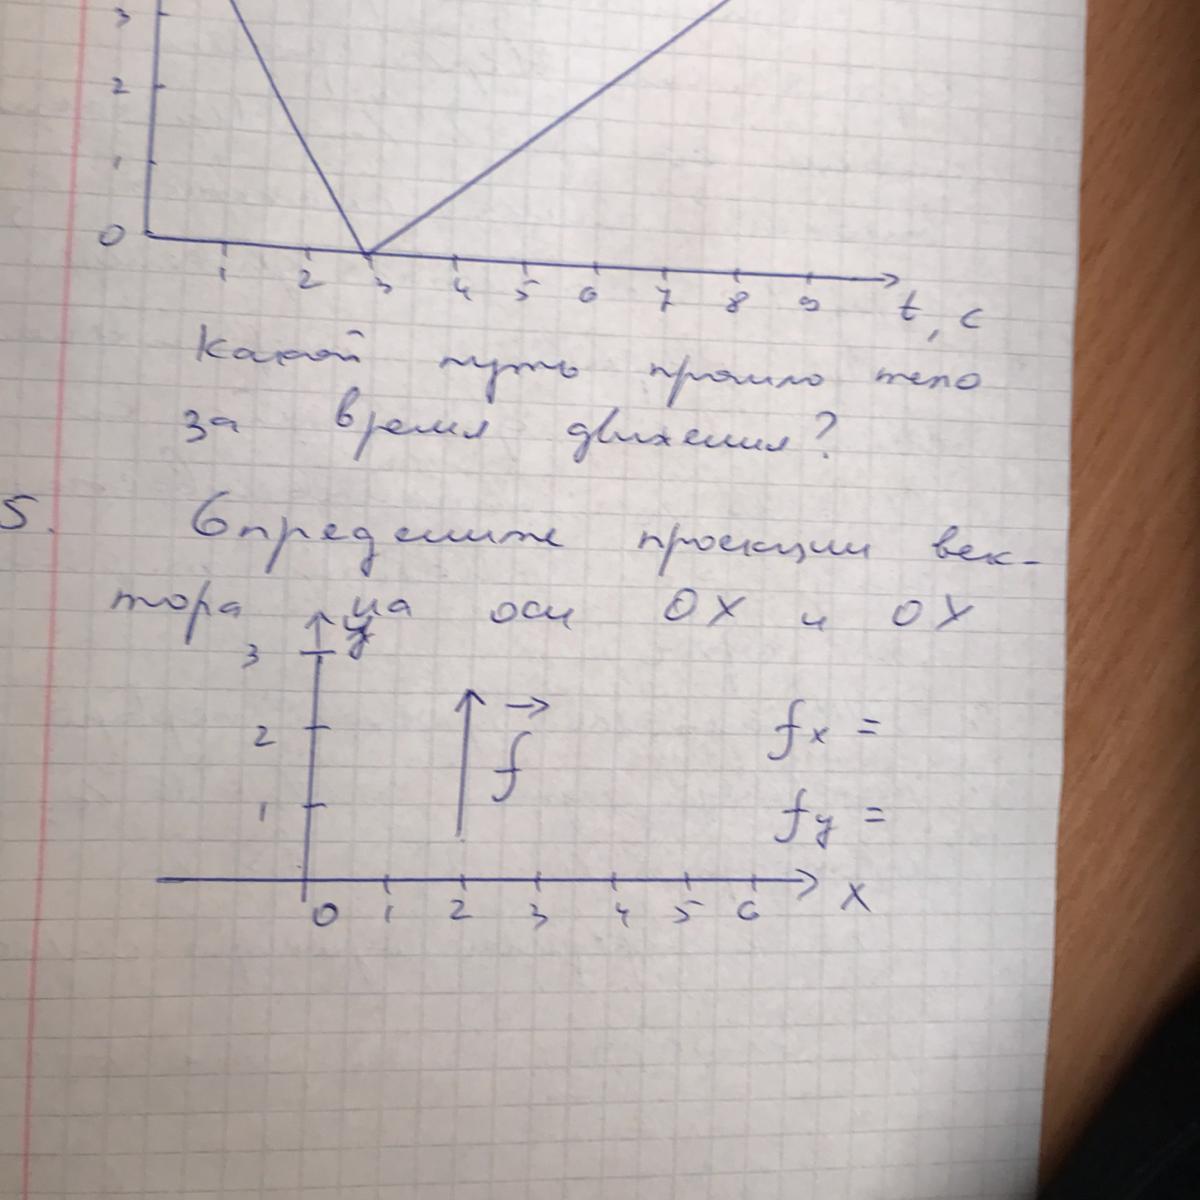 3
2
1
0
1 2 3 4 5 6 7 8 9 t, c
Какой путь прошло тело
за время движения?
5. Определите проекции век-
тора на оси OX и OY
y
3
2
1
f
fx =
fy =
0 1 2 3 4 5 6 x